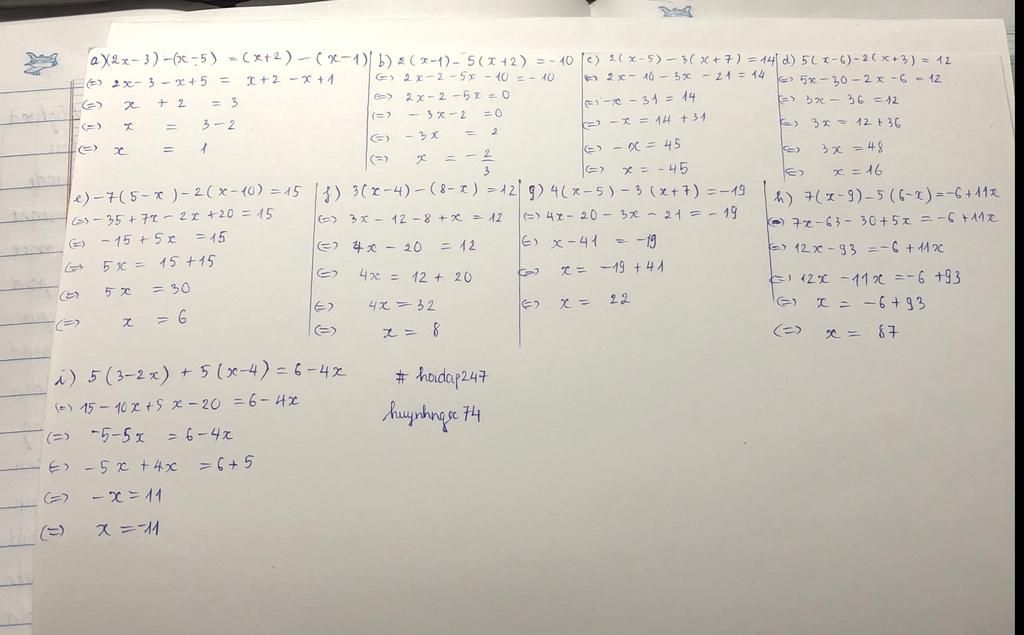 a) (2x-3)-(x-5) = (x+2)-(x-1)
(=) 2x-3-x+5 = x+2-x+1
(=) x + 2 = 3
(=) x = 3-2
(=) x = 1
b) 2(x-1)-5(x+2) = -10
(=) 2x-2-5x-10 = -10
(=) 2x-2-5x = 0
(=) -3x-2 = 0
(=) -3x = 2
(=) x = -2/3
c) 2(x-5)-3(x+7) = 14
(=) 2x-10-3x-21 = 14
(=) -x-31 = 14
(=) -x = 14+31
(=) -x = 45
(=) x = -45
d) 5(x-6)-2(x+3) = 12
(=) 5x-30-2x-6 = 12
(=) 3x-36 = 12
(=) 3x = 12+36
(=) 3x = 48
(=) x = 16
e) -7(5-x)-2(x-10) = 15
(=) -35+7x-2x+20 = 15
(=) -15+5x = 15
(=) 5x = 15+15
(=) 5x = 30
(=) x = 6
f) 3(x-4)-(8-x) = 12
(=) 3x-12-8+x = 12
(=) 4x-20 = 12
(=) 4x = 12+20
(=) 4x = 32
(=) x = 8
g) 4(x-5)-3(x+7) = -19
(=) 4x-20-3x-21 = -19
(=) x-41 = -19
(=) x = -19+41
(=) x = 22
h) 7(x-9)-5(6-x) = -6+11x
(=) 7x-63-30+5x = -6+11x
(=) 12x-93 = -6+11x
(=) 12x-11x = -6+93
(=) x = -6+93
(=) x = 87
i) 5(3-2x)+5(x-4) = 6-4x
(=) 15-10x+5x-20 = 6-4x
(=) -5-5x = 6-4x
(=) -5x+4x = 6+5
(=) -x = 11
(=) x = -11
# hoidap247
huynhngoc74